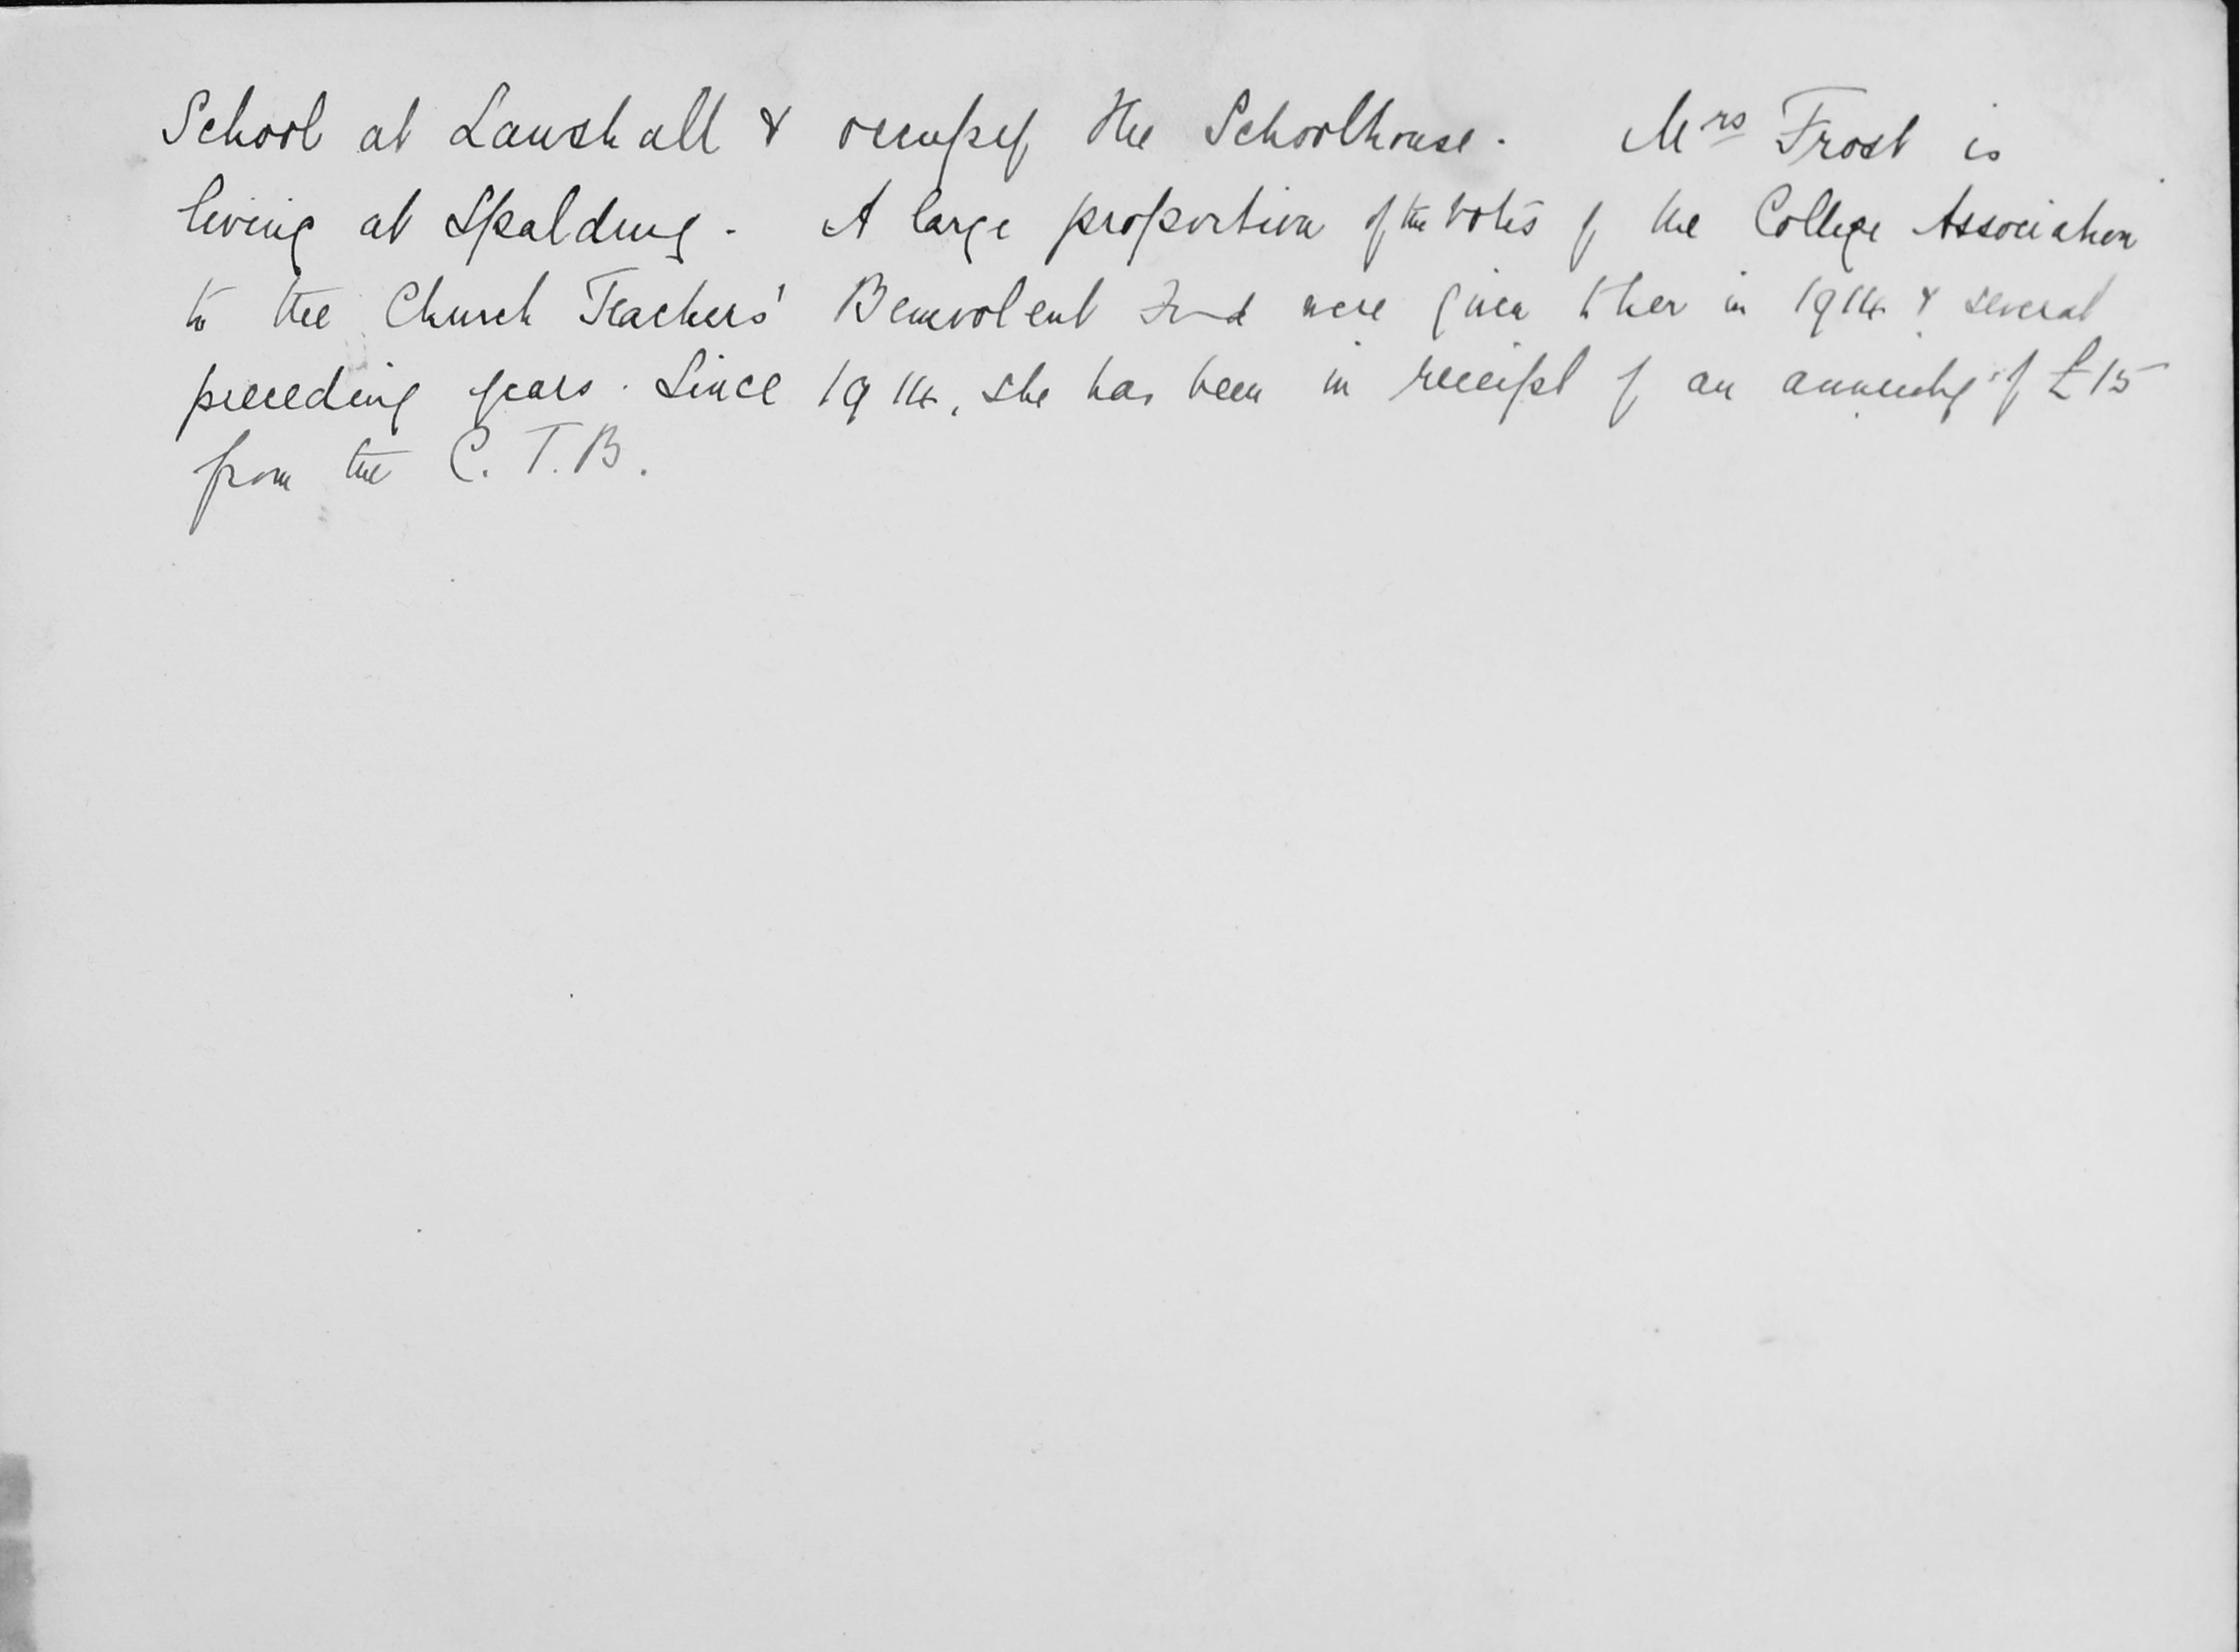 School at Lawshall & occupy the Schoolhouse. Mrs Frost is
living at Spalding. A large proportion of the votes of the College Association
to the Church Teachers' Benevolent Fund were given to her in 1914 & several
preceding years. Since 1914, she has been in receipt of an annuity of £15
from the C. T. B.